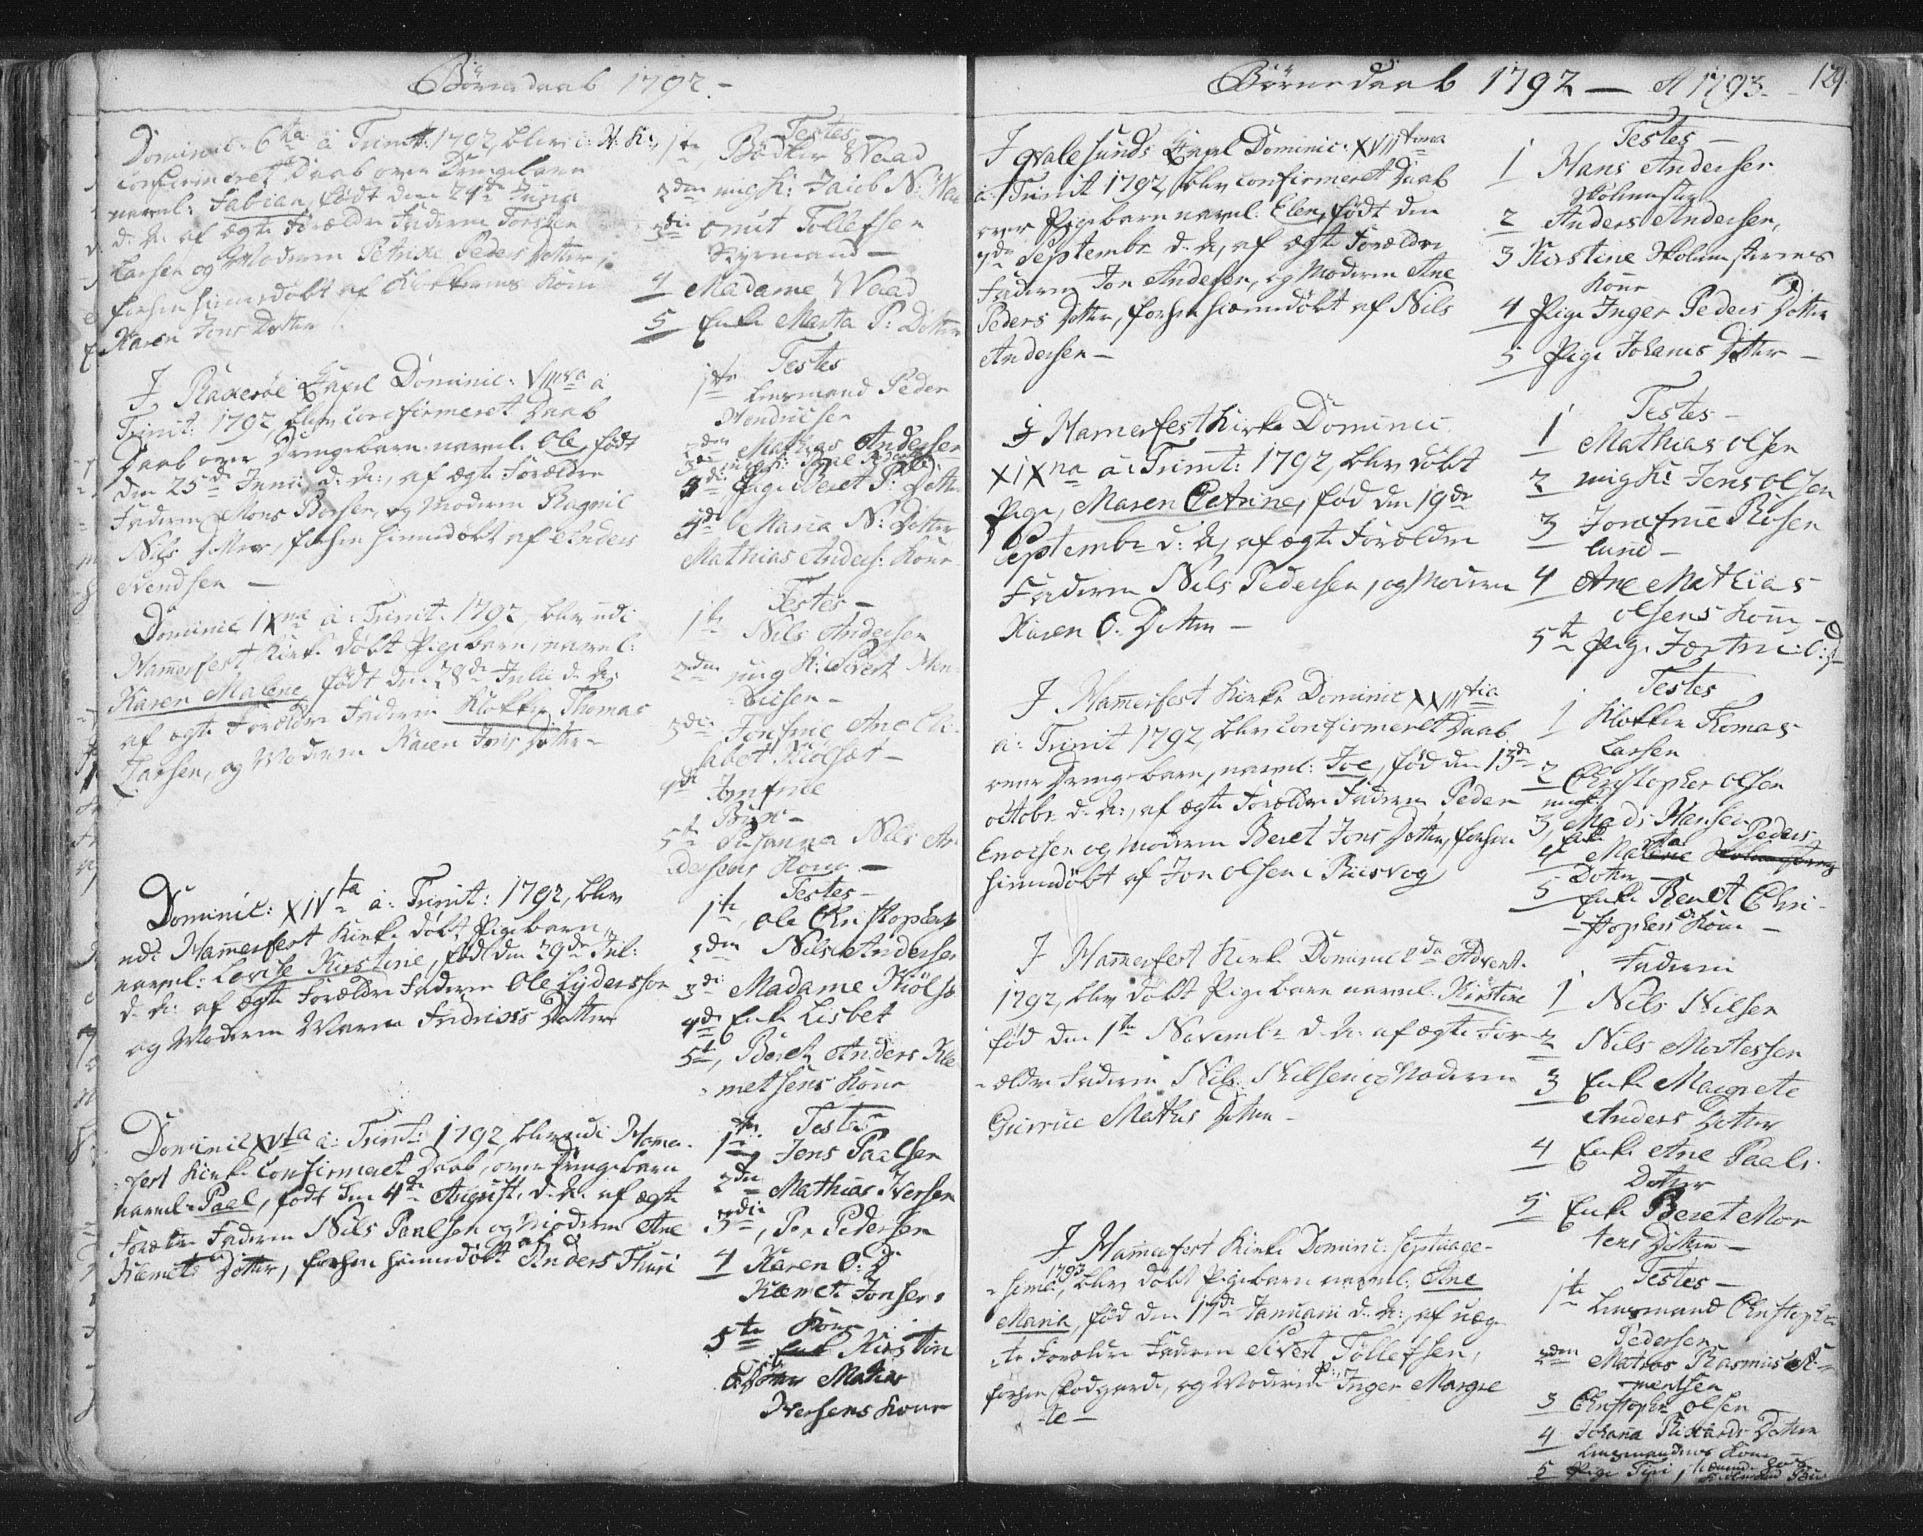 Börnedaab 1792.-
Dominic: 6ta à Trinit: 1792, blev i H: K:
confirmeret Daab over Drengebarn
navnl: Fabian, født den 24de Junii
d: A: af ægte Forældre Faderen Torsten
Larsen og Moderen Petrike Peders Dotter,
forhen hiemmedöbt af Klokkerens Kone
Karen Jons Dotter
Testes
1te Bödker Waad
2den ungk: Jacob N: Waa
3die Omit Tollefsen
Styrmand —
4 Madame Waad
5 Enke Marta P: Dotter
I Capel Dominic: VIIIva à
Trinit: 1792, blev confirmeret Daab
Daab over Drengebarn navnl. Ole, født
den 25de Junii, d: A:, af ægte Forældre
Faderen Mons Boesen, og Moderen Ragnil
Nils Dotter, forhen hiemmedöbt af Anders
Svendsen —
Testes
1te Lensmand Peder
Hendricsen
2den Mathias Andersen
3die Pige Beret P: Dotter
4de Maria N: Dotter
Mathias Anders: Kone
Dominic IXna à: Trinit. 1792, blev udi
Hamerfest Kirke döbt Pigebarn, navnl:
Karen Malene, født den 28de Julii d. A:
af ægte Forældre Faderen Klokker Thomas
Larsen, og Moderen Karen Jons Dotter —
Testes —
1te Nils Andersen
2den ungk: Sivert Hen-
dricsen —
3die Jomfrue Ane Eli-
sabet Kiölsöt —
4de Jomfrue
5te Susanna Nils An
dersens Kone —
Dominic: XIVta à: Trinit: 1792, blev
udi Hamerfest Kirke döbt Pigebarn
navnl: Lovise Kirstine, född den 29de Jul:
d: A: af ægte Forældre Faderen Ole Lydersson
og Moderen Maren Fridrics Dotter
Testes —
1te, Ole Christophers
2den Nils Andersen
3die Madame Kiölsö
4de Enke Lisbet
5te, Beret Anders Kle
metsens Kone
Dominic XVta à: Trinit: 1792, blev udi Hamer-
fest Kirke confirmeret Daab, over Drengebarn
navnl: Paal, født den 4de August, d. A: af ægte
Forældre Faderen Nils Paalsen og Moderen Ane
Klemets Dotter, forhen hiemmedöbt af Anders
Testes
1te Jens Paalsen
2den Mathias Iversen
3die, Per Pedersen
4 Karen O: D
Klemet Jonsens
Kone
5te Kirstine
Mathias
Iversens Kone
Börnedaab 1792 — A 1793 - 129.
I Qvalesunds Capel Dominic: XVIItima
à: Trinit 1792, blev confirmeret Daab
over Pigebarn navnl: Elen, født den
7de Septembr d: A, af ægte Forældre
Faderen Jon Andersen, og Moderen Ane
Peders Dotter, forhen hiemmedöbt af Nils
Andersen —
Testes —
1 Hans Andersen
Skolemester
2 Anders Andersen,
3 Kirstine Skolemesterens
Kone
4 Pige Inger Peders Dotter
5 Pige Johanes Dotter —
I Hamerfest Kirke Dominic
XIXna à: Trinit: 1792, blev döbt
Pige, Maren Petrine, föd den 19de
Septembr d: A, af ægte Forældre
Faderen Nils Pedersen, og Moderen
Karen O. Dotter —
Testes —
1 Mathias Olsen
2 ungk: Jens Olsen
3 Jomfrue Rosen
lund —
4 Ane Mathias
Olsens Kone —
5te Pige O: D
I Hamerfest Kirke Dominic XXIItia
à: Trinit 1792, blev confirmeret Daab
over Drengebarn, navnl: Joe, föd den 13de
Octobr d: A:, af ægte Forældre Faderen Peder
Enocsen og Moderen Beret Jons Dotter, forhen
hiemmedöbt af Jon Olsen i Riisvog
Testes
1 Klokker Thomas
Larsen
2 Christopher Olsen
3, ungk: Mads Hansen
4 Enke Peders
Dotter —
5 Enke Beret Chri-
stophers Kone —
I Hamerfest Kirke Dominic 2da Advent.
1792, blev döbt Pigebarn navnl: Kirstine
föd den 1te Novembr d. A: af ægte For
ældre Faderen Nils Nilsen og Moderen
Gurrue Mathis Dotter —
Fadderne
1 Nils Nilsen
2 Nils Mortessen
3 Enke Margrete
Anders Dotter
4 Enke Ane Paals
Dotter
5 Enke Beret Mor
tens Dotter —
I Hamerfest Kirke Dominic: Septuage-
simæ, 1793, blev döbt Pigebarn navnl: Ane
Maria, föd den 17de Januarii d. A:, af uæg
te Forældre Faderen Sivert Tollefsen,
forhen, og Moderen P: Inger Margre
te —
Testes —
1te Lensmand Christopher
Pedersen
2den Matros Rasmus
3 Christopher Olsen
4 Johana Rikards Dotter
Lensmandens Kone
5 Pige Siri,